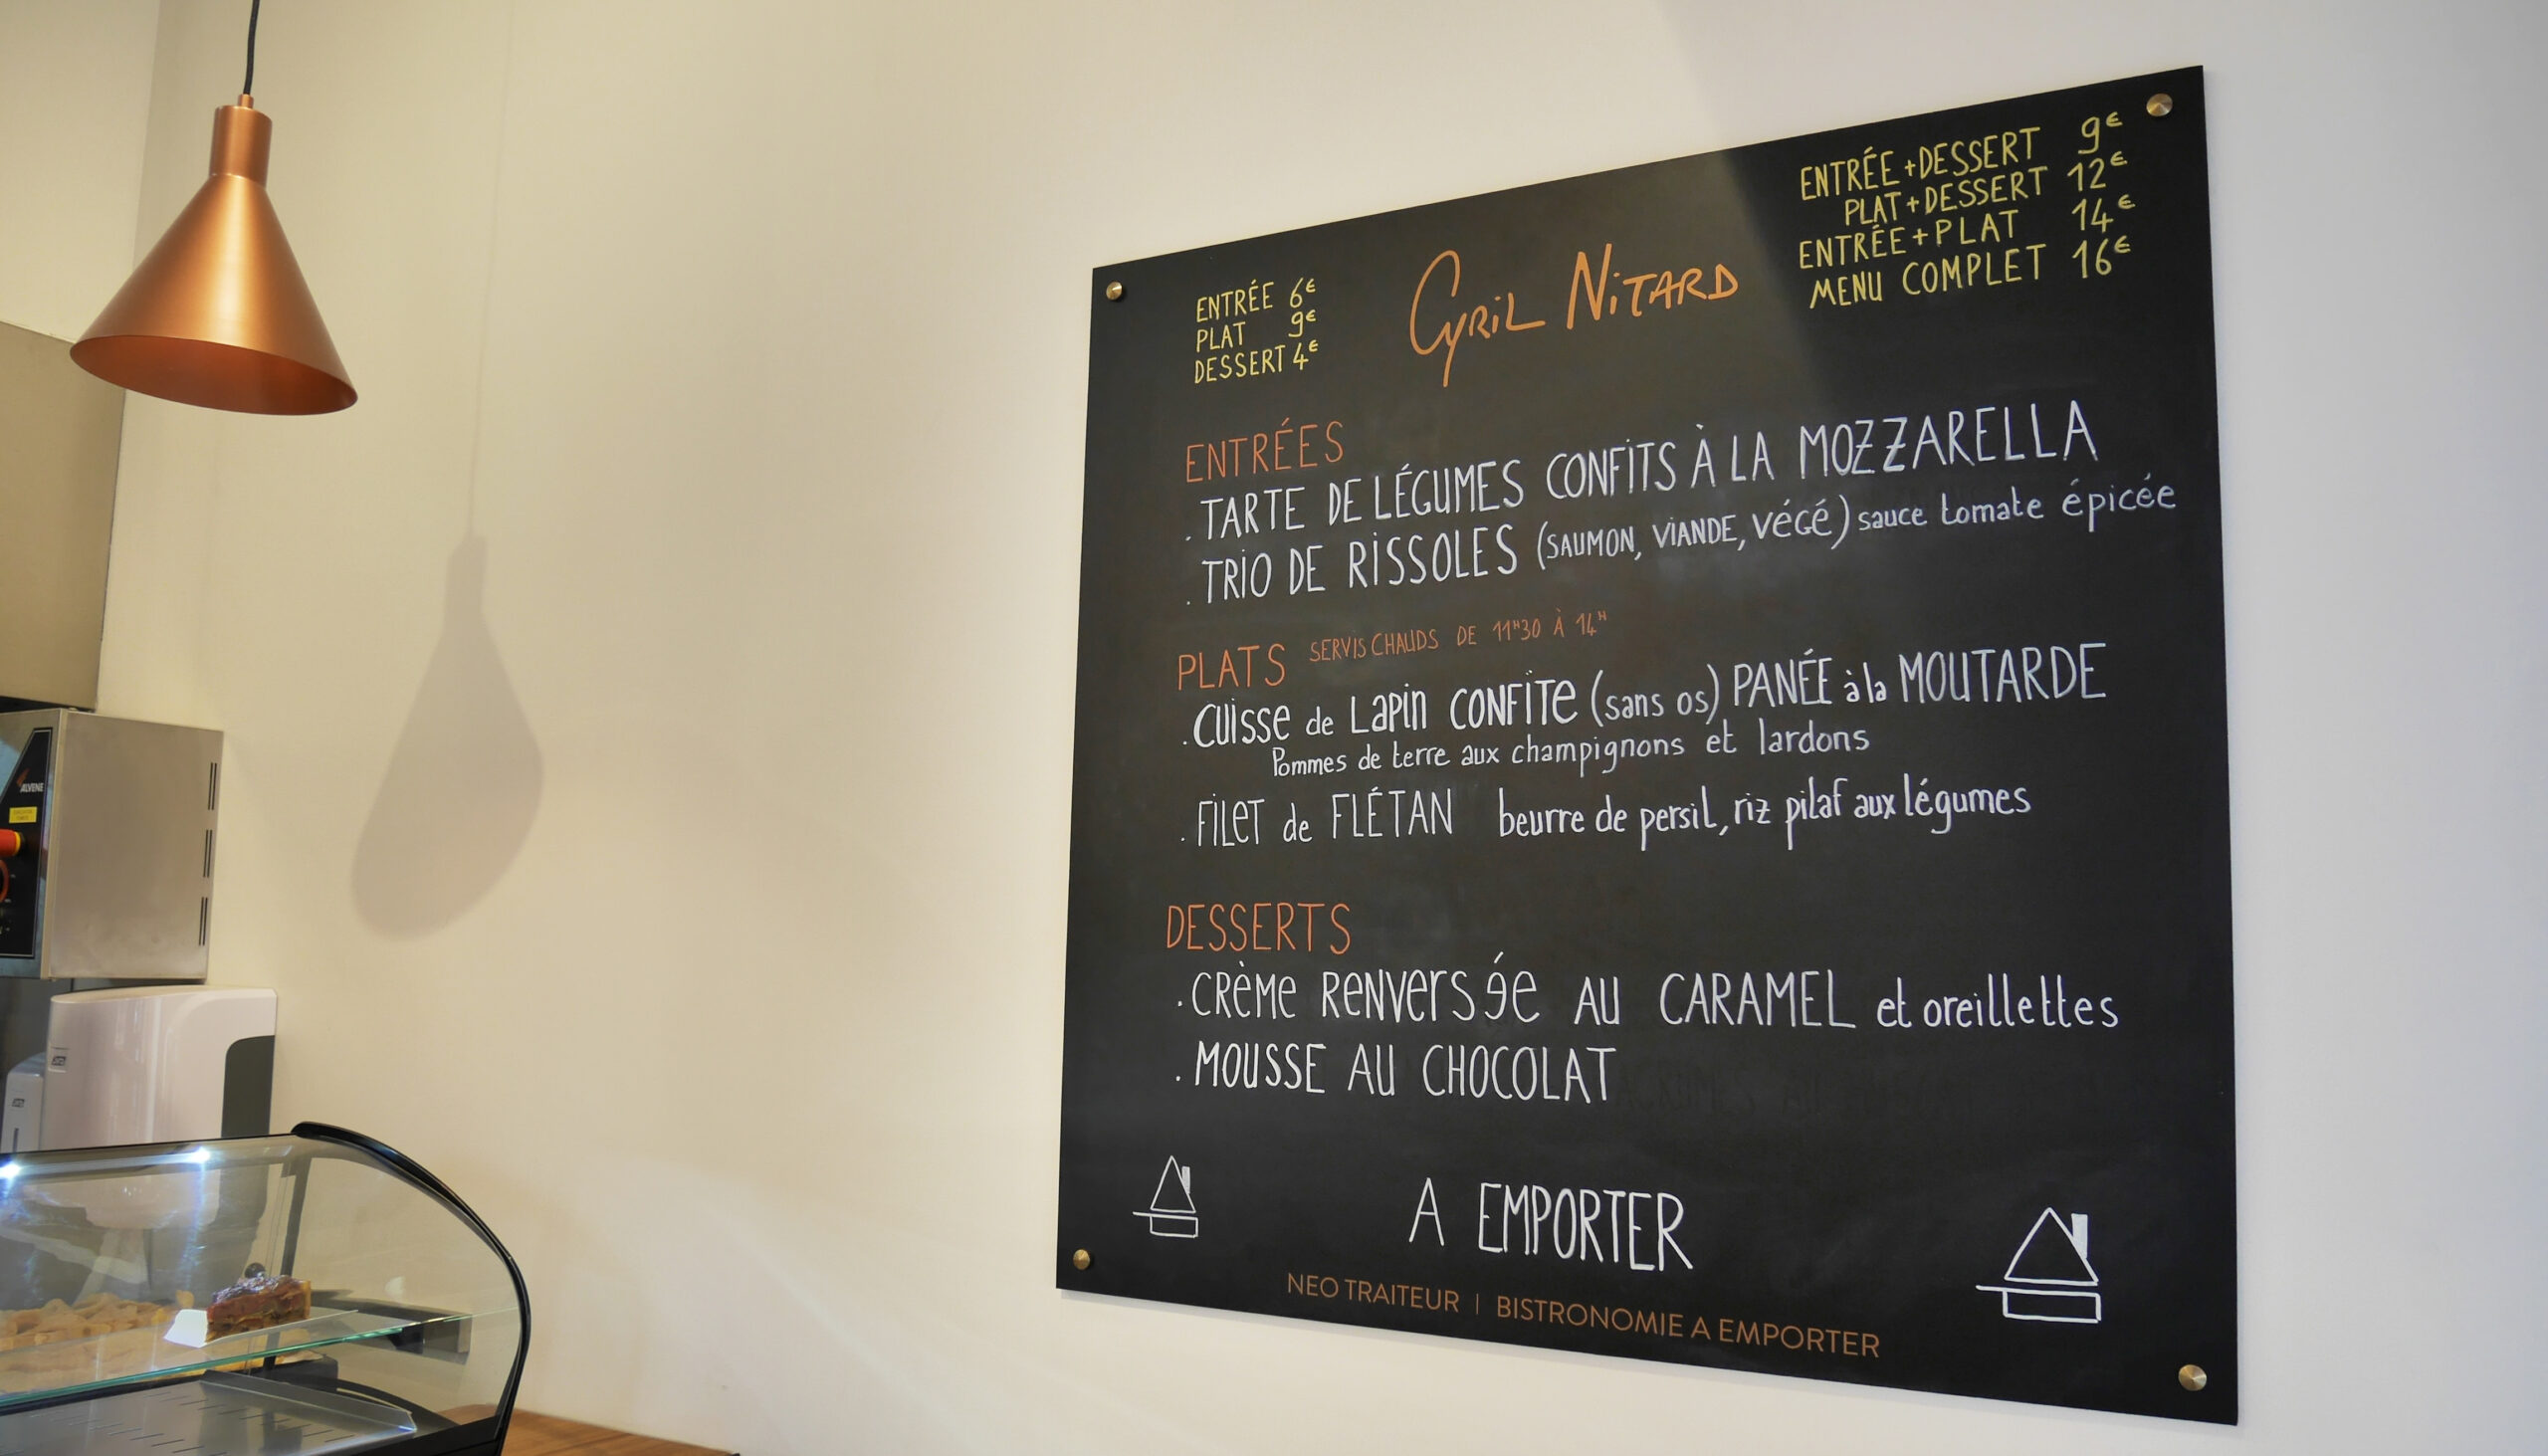 ENTRÉE 6€
PLAT 9€
DESSERT 4€
CYRIL NITARD
ENTRÉE+DESSERT 9€
PLAT+DESSERT 12€
ENTRÉE+PLAT 14€
MENU COMPLET 16€
ENTRÉES
. TARTE DE LÉGUMES CONFITS À LA MOZZARELLA
. TRIO DE RISSOLES (SAUMON, VIANDE, VÉGÉ) sauce tomate épicée
PLATS SERVIS CHAUDS DE 11H30 À 14H
. CUISSE de LAPIN CONFITE (sans os) PANÉE à la MOUTARDE
Pommes de terre aux champignons et lardons
. FILET de FLÉTAN beurre de persil, riz pilaf aux légumes
DESSERTS
. CRÈME RENVERSÉE AU CARAMEL et oreillettes
. MOUSSE AU CHOCOLAT
A EMPORTER
NEO TRAITEUR | BISTRONOMIE A EMPORTER
ALVENE